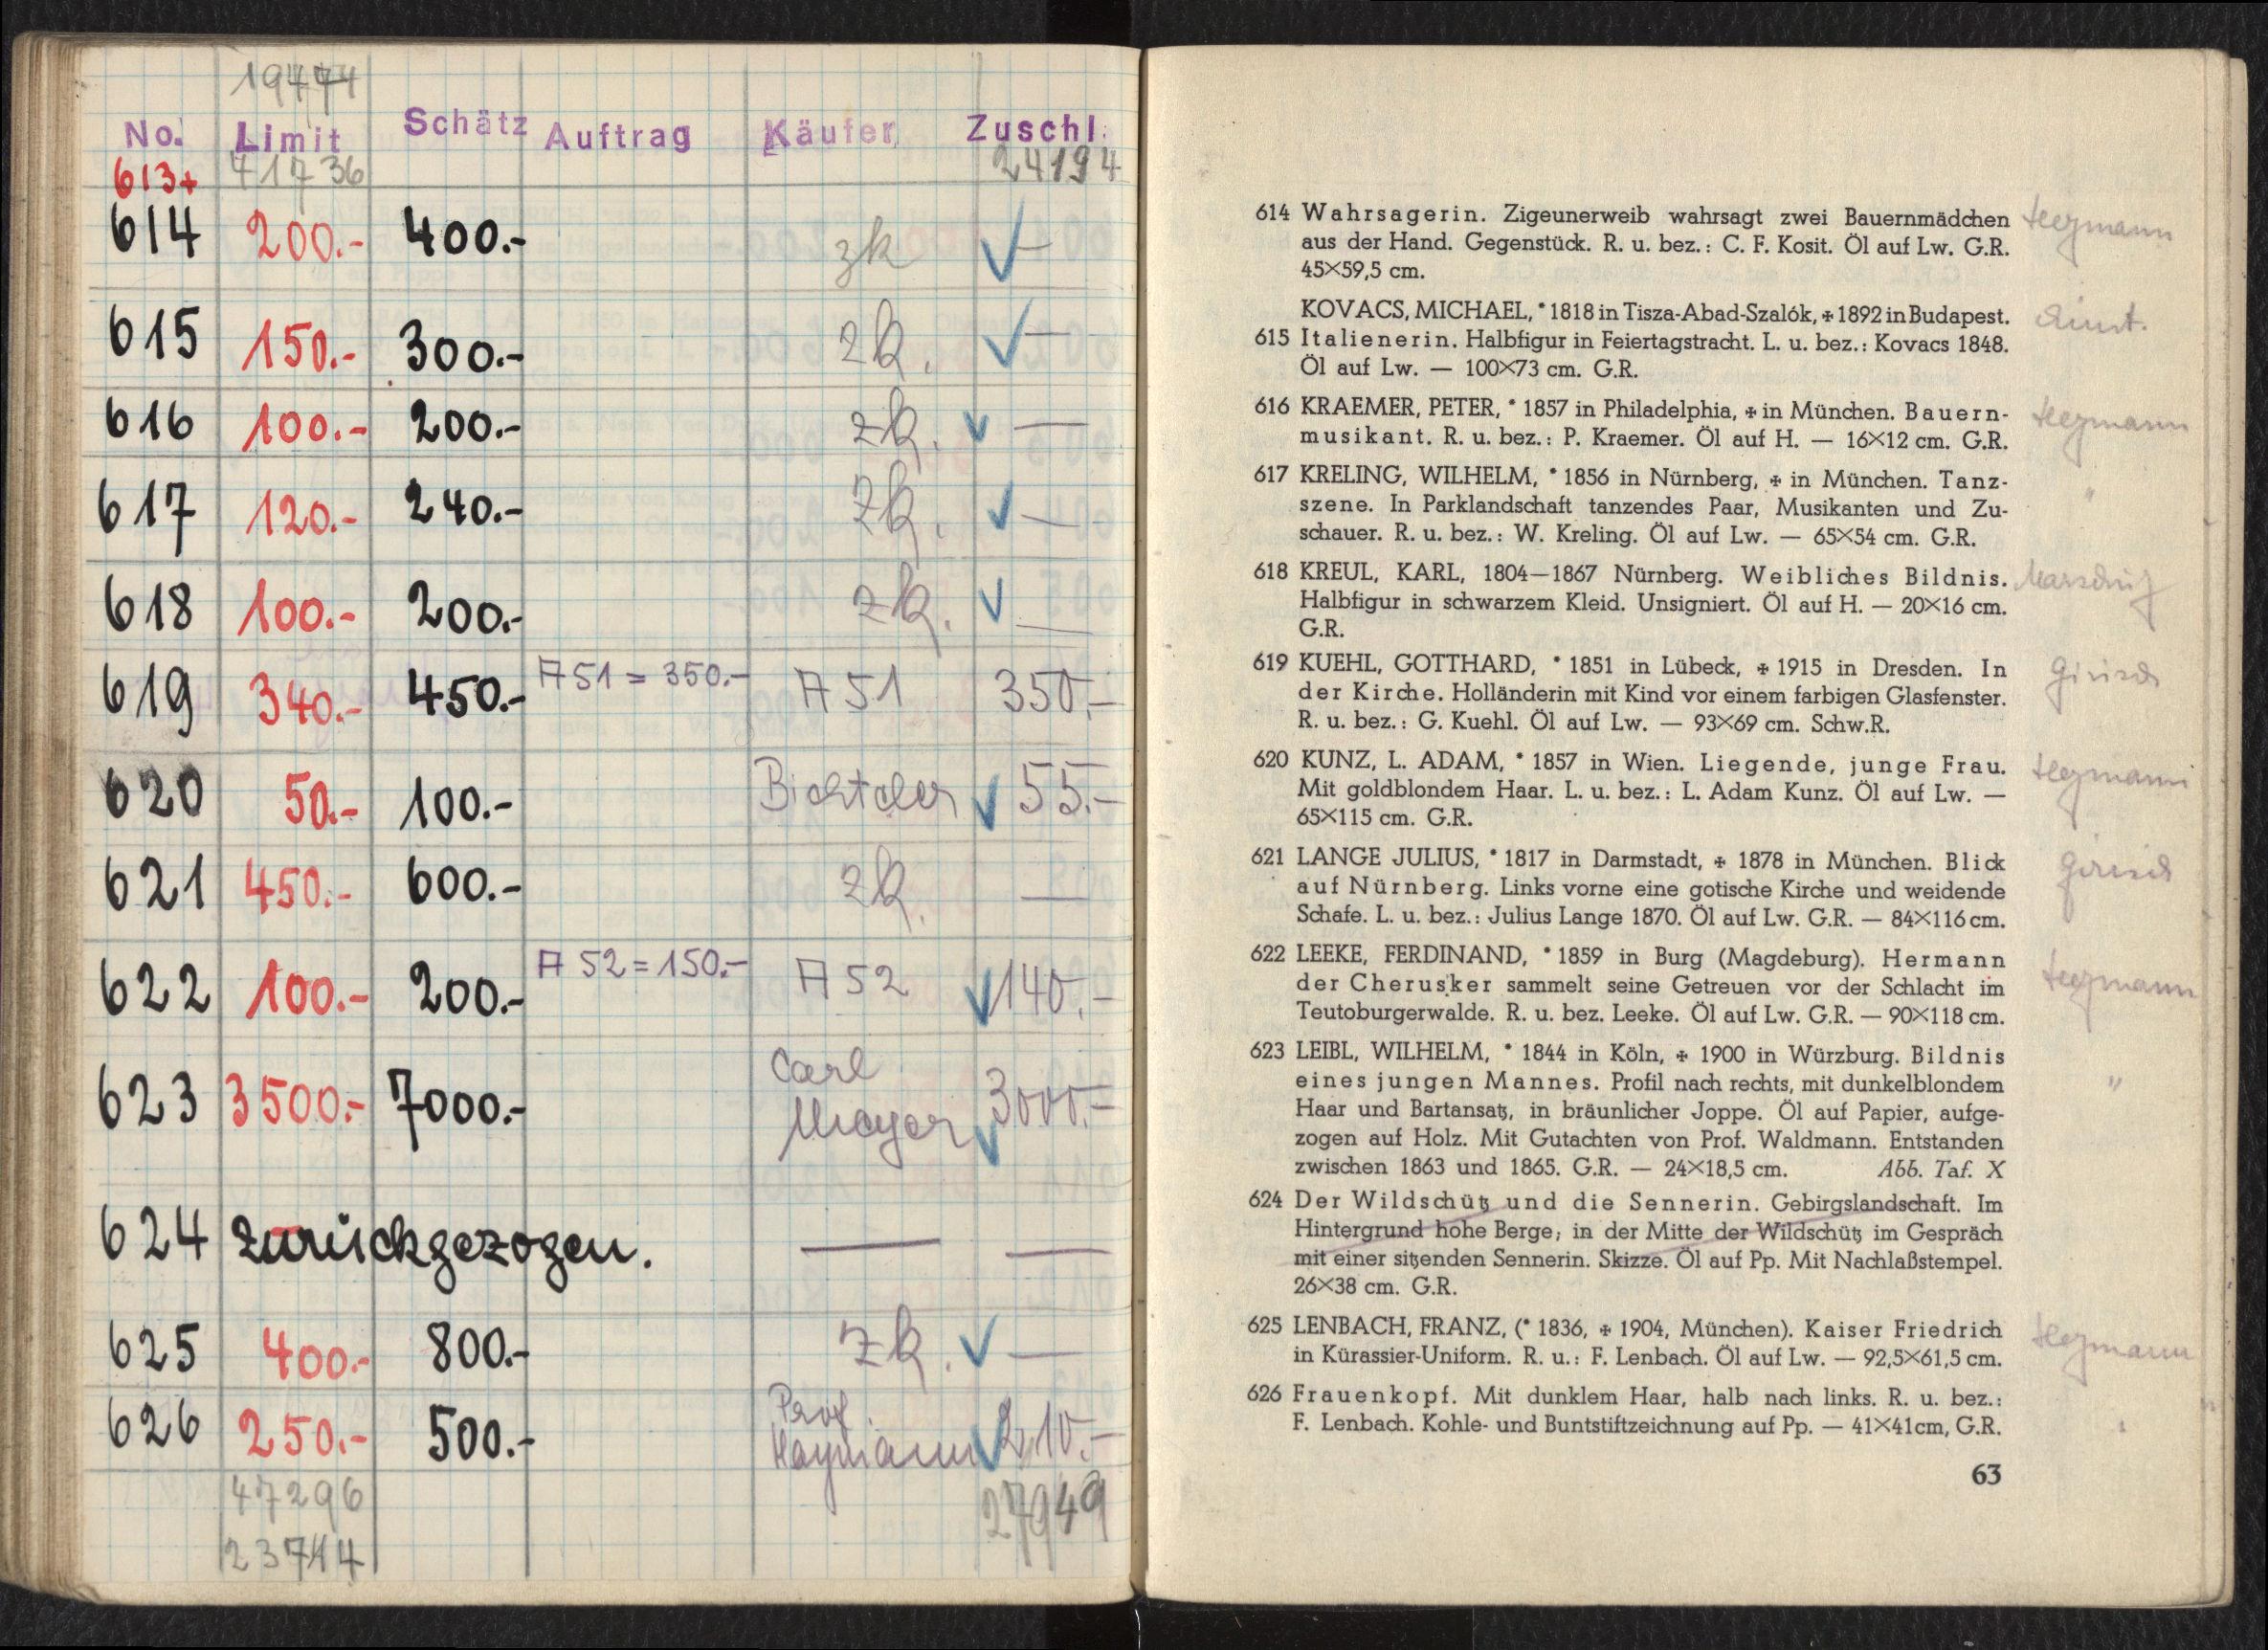 No. Limit Schätz Auftrag Käufer Zuschl.
613+ 41736 24194
614 200.- 400.- zk —
615 150.- 300.- zk. —
616 100.- 200.- zk. —
617 120.- 240.- zk. —
618 100.- 200.- zk. —
619 340.- 450.- A 51 = 350.- A 51 350.-
620 50.- 100.- 55.-
621 450.- 600.- zk. —
622 100.- 200.- A 52 = 150.- A 52 140.-
623 3500.- 7000.- Carl Mayer 3000.-
624 zurückgezogen. — —
625 400.- 800.- zk. —
626 250.- 500.- Prof. 210.-
47296 27949
614 Wahrsagerin. Zigeunerweib wahrsagt zwei Bauernmädchen
aus der Hand. Gegenstück. R. u. bez.: C. F. Kosit. Öl auf Lw. G.R.
45×59,5 cm.
KOVACS, MICHAEL, * 1818 in Tisza-Abad-Szalók, ✠ 1892 in Budapest.
615 Italienerin. Halbfigur in Feiertagstracht. L. u. bez.: Kovacs 1848.
Öl auf Lw. — 100×73 cm. G.R.
616 KRAEMER, PETER, * 1857 in Philadelphia, ✠ in München. Bauern-
musikant. R. u. bez.: P. Kraemer. Öl auf H. — 16×12 cm. G.R.
617 KRELING, WILHELM, * 1856 in Nürnberg, ✠ in München. Tanz-
szene. In Parklandschaft tanzendes Paar, Musikanten und Zu-
schauer. R. u. bez.: W. Kreling. Öl auf Lw. — 65×54 cm. G.R.
"
618 KREUL, KARL, 1804—1867 Nürnberg. Weibliches Bildnis.
Halbfigur in schwarzem Kleid. Unsigniert. Öl auf H. — 20×16 cm.
G.R.
619 KUEHL, GOTTHARD, * 1851 in Lübeck, ✠ 1915 in Dresden. In
der Kirche. Holländerin mit Kind vor einem farbigen Glasfenster.
R. u. bez.: G. Kuehl. Öl auf Lw. — 93×69 cm. Schw.R.
620 KUNZ, L. ADAM, * 1857 in Wien. Liegende, junge Frau.
Mit goldblondem Haar. L. u. bez.: L. Adam Kunz. Öl auf Lw. —
65×115 cm. G.R.
621 LANGE JULIUS, * 1817 in Darmstadt, ✠ 1878 in München. Blick
auf Nürnberg. Links vorne eine gotische Kirche und weidende
Schafe. L. u. bez.: Julius Lange 1870. Öl auf Lw. G.R. — 84×116 cm.
622 LEEKE, FERDINAND, * 1859 in Burg (Magdeburg). Hermann
der Cherusker sammelt seine Getreuen vor der Schlacht im
Teutoburgerwalde. R. u. bez. Leeke. Öl auf Lw. G.R. — 90×118 cm.
623 LEIBL, WILHELM, * 1844 in Köln, ✠ 1900 in Würzburg. Bildnis
eines jungen Mannes. Profil nach rechts, mit dunkelblondem "
Haar und Bartansatz, in bräunlicher Joppe. Öl auf Papier, aufge-
zogen auf Holz. Mit Gutachten von Prof. Waldmann. Entstanden
zwischen 1863 und 1865. G.R. — 24×18,5 cm. Abb. Taf. X
624 Der Wildschütz und die Sennerin. Gebirgslandschaft. Im
Hintergrund hohe Berge; in der Mitte der Wildschütz im Gespräch
mit einer sitzenden Sennerin. Skizze. Öl auf Pp. Mit Nachlaßstempel.
26×38 cm. G.R.
625 LENBACH, FRANZ, (* 1836, ✠ 1904, München). Kaiser Friedrich
in Kürassier-Uniform. R. u.: F. Lenbach. Öl auf Lw. — 92,5×61,5 cm.
626 Frauenkopf. Mit dunklem Haar, halb nach links. R. u. bez.:
F. Lenbach. Kohle- und Buntstiftzeichnung auf Pp. — 41×41cm, G.R.
63